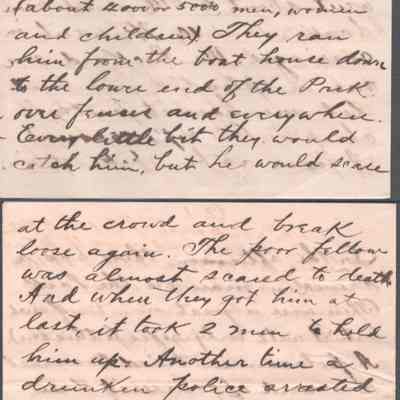 (about 4000 or 5000, men, women
and children) They ran
him from the boat house down
to the lower end of the Park.
over fences and everywhere.
Every little bit they would
catch him, but he would scare
at the crowd and break
loose again. The poor fellow
was almost scared to death.
And when they got him at
last, it took 2 men to hold
him up. Another time a
drunken police arrested